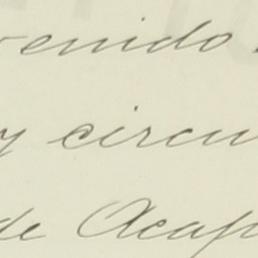 venido
y circu
de Acap